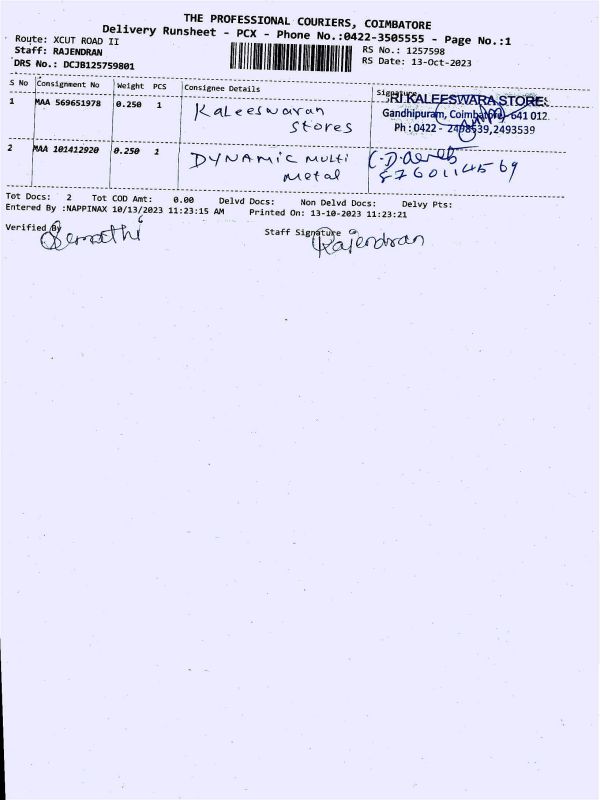 THE PROFESSIONAL COURIERS, COIMBATORE
Delivery Runsheet - PCX - Phone No.:0422-3505555 - Page No.:1
Route: XCUT ROAD II
RS No.: 1257598
Staff: RAJENDRAN
RS Date: 13-Oct-2023
DRS No.: DCJB125759801
S No Consignment No Weight PCS Consignee Details Signature
1 MAA 569651978 0.250 1 Kaleeswaran
Stores
SRI KALEESWARA STORES
Gandhipuram, Coimbatore - 641 012.
Ph : 0422 - 2498539,2493539
2 MAA 101412920 0.250 1 DYNAMIC MULTI
Metal
Tot Docs: 2 Tot COD Amt: 0.00 Delvd Docs: Non Delvd Docs: Delvy Pts:
Entered By :NAPPINAX 10/13/2023 11:23:15 AM Printed On: 13-10-2023 11:23:21
Verified By
Staff Signature
Rajendran